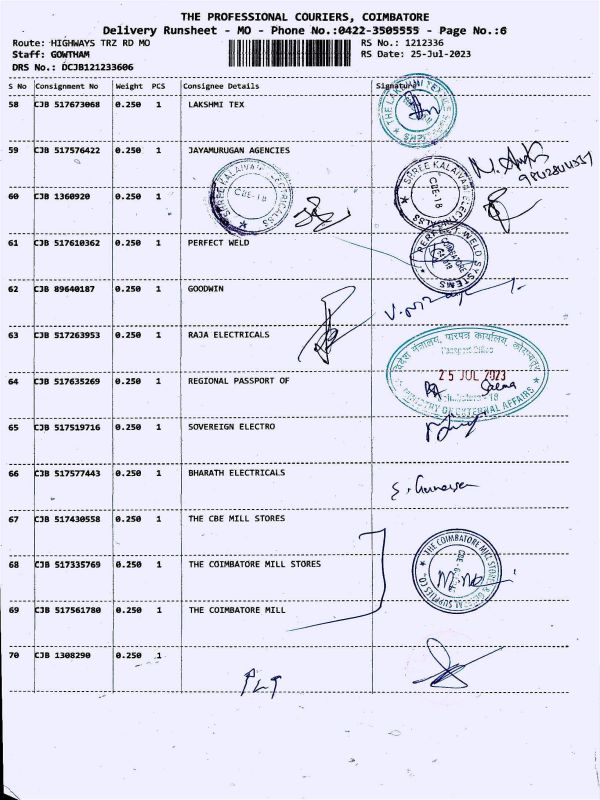 THE PROFESSIONAL COURIERS, COIMBATORE
Delivery Runsheet - MO - Phone No.:0422-3505555 - Page No.:6
Route: HIGHWAYS TRZ RD MO RS No.: 1212336
Staff: GOWTHAM RS Date: 25-Jul-2023
DRS No.: DCJB121233606
S No Consignment No Weight PCS Consignee Details Signature
58 CJB 517673068 0.250 1 LAKSHMI TEX
59 CJB 517576422 0.250 1 JAYAMURUGAN AGENCIES
SHREE KALAIVANI ELECTRICALSS
CBE-18
SHREE KALAIVANI ELECTRICALSS
CBE-18
60 CJB 1360920 0.250 1
61 CJB 517610362 0.250 1 PERFECT WELD
PERFECT WELD SYSTEMS
62 CJB 89640187 0.250 1 GOODWIN
63 CJB 517263953 0.250 1 RAJA ELECTRICALS
Passport Office
64 CJB 517635269 0.250 1 REGIONAL PASSPORT OF
25 JUL 2023
Coimbatore - 18
MINISTRY OF EXTERNAL AFFAIRS
65 CJB 517519716 0.250 1 SOVEREIGN ELECTRO
66 CJB 517577443 0.250 1 BHARATH ELECTRICALS
67 CJB 517430558 0.250 1 THE CBE MILL STORES
68 CJB 517335769 0.250 1 THE COIMBATORE MILL STORES
THE COIMBATORE MILL STORES & GENERAL SUPPLIES CO
69 CJB 517561780 0.250 1 THE COIMBATORE MILL
70 CJB 1308290 0.250 1